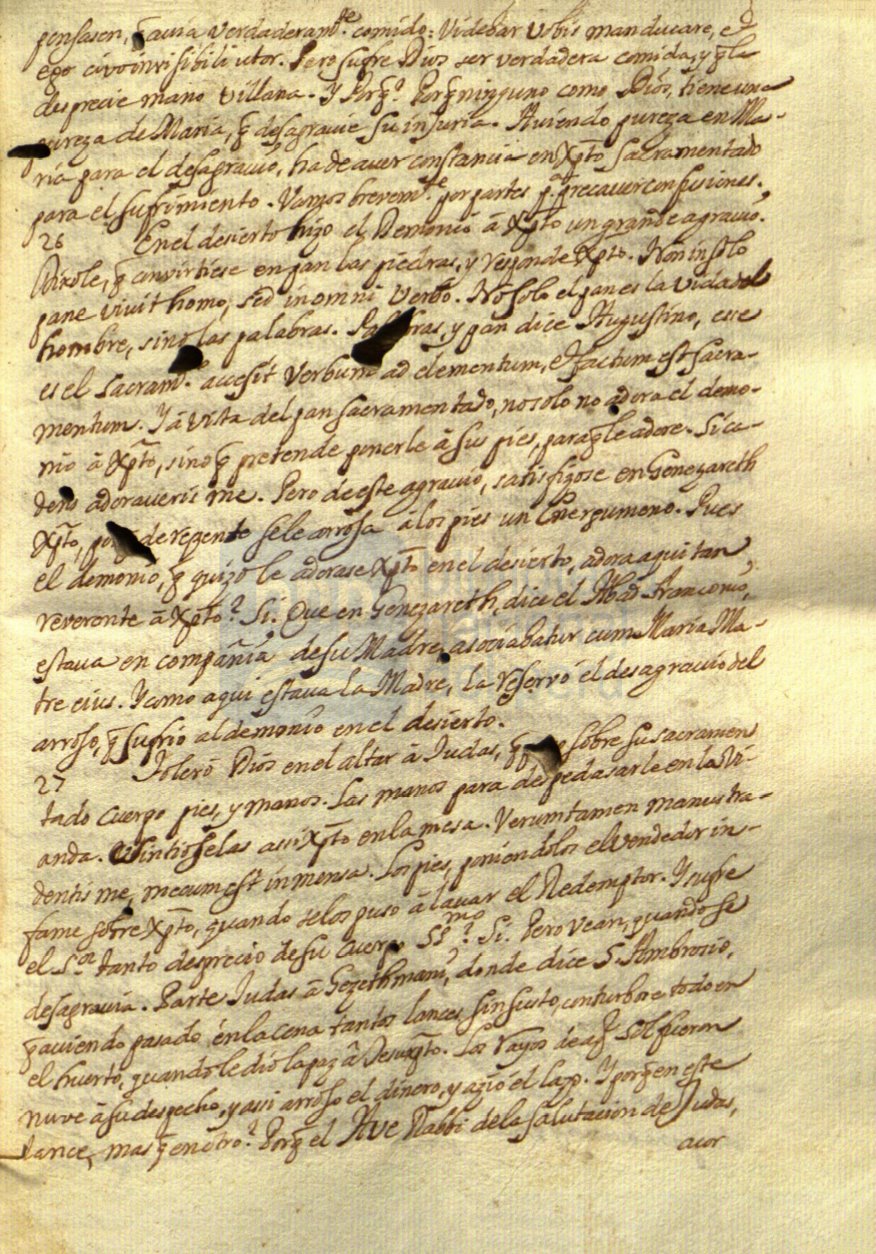 pensasen, q̃ auia Verdaderam.te comido: Videbar vobis manducare, et
ego civo invisibili utor. Pero sufre Dios ser verdadera comida, y q̃ le
desprecie mano villana. Y Porq̃? Porq̃ ninguno como Dios, tiene una
pureza de Maria, q̃ desagravie su injuria. Aviendo pureza en Ma-
ria para el desagravio, ha de aver constancia en Xp̃to Sacramentado
para el sufrimiento. Vamos brevem.te por partes p.a precaver confusiones.
26 En el desierto hizo el Demonio â Xp̃to un grande agravio.
Dixole, q̃ convirtiese en pan las piedras, y responde Xp̃to. Non in solo
pane vivit homo, sed in omni Verbo. No solo el pan es la vida del
hombre, sino las palabras. Palabras, y pan dice Augustino, ese
es el Sacram.to accesit Verbum ad elementum, et factum est sacra-
mentum. Y â vista del pan sacramentado, no solo no adora el demo-
nio â Xp̃to, sino q̃ pretende ponerle â sus pies, para q̃ le adore. Si ca-
dens adoraveris me. Pero de este agravio, satisfizose en Genezareth
Xp̃to, de repente se le arrosa â los pies un Energumeno. Pues
el demonio, q̃ quizo le adorase Xp̃to en el desierto, adora aqui tan
reverente â Xp̃to? Si. Que en Genezareth, dice el Abad Franconio,
estava en compañia de su Madre, asociabatur cum Maria Ma-
tre eius. Y como aqui estava la Madre, la reservó el desagravio del
arroso, q̃ sufrio al demonio en el desierto.
27 Toleró Dios en el altar â Judas, q̃ sobre su sacramen
tado Cuerpo pies, y manos. Las manos para despedasarle en la Vi-
anda. Sintioselas assi Xp̃to en la mesa. Verumtamen manus tra-
dentis me, mecum est in mensa. Los pies, poniendolos el vendedor in-
fame sobre Xp̃to, quando se los puso â lavar el Redemptor. Y sufre
el S.or tanto desprecio de su Cuerpo SS.mo? Si. Pero vean, quando se
desagravia. Parte Judas â Gezethmani, donde dice S. Ambrosio,
q̃ aviendo pasado en la cena tantos lances sin susto, conturbose todo en
el huerto, quando le dió la paz â Jesuxp̃to. Los rayos de aq̃l Sol fueron
nuve â su despecho, y assi arroso el dinero, y azió el lazo. Y porq̃ en este
lance, mas q̃ en otro? Porq̃ el Ave Rabbi de la salutacion de Judas,
acor